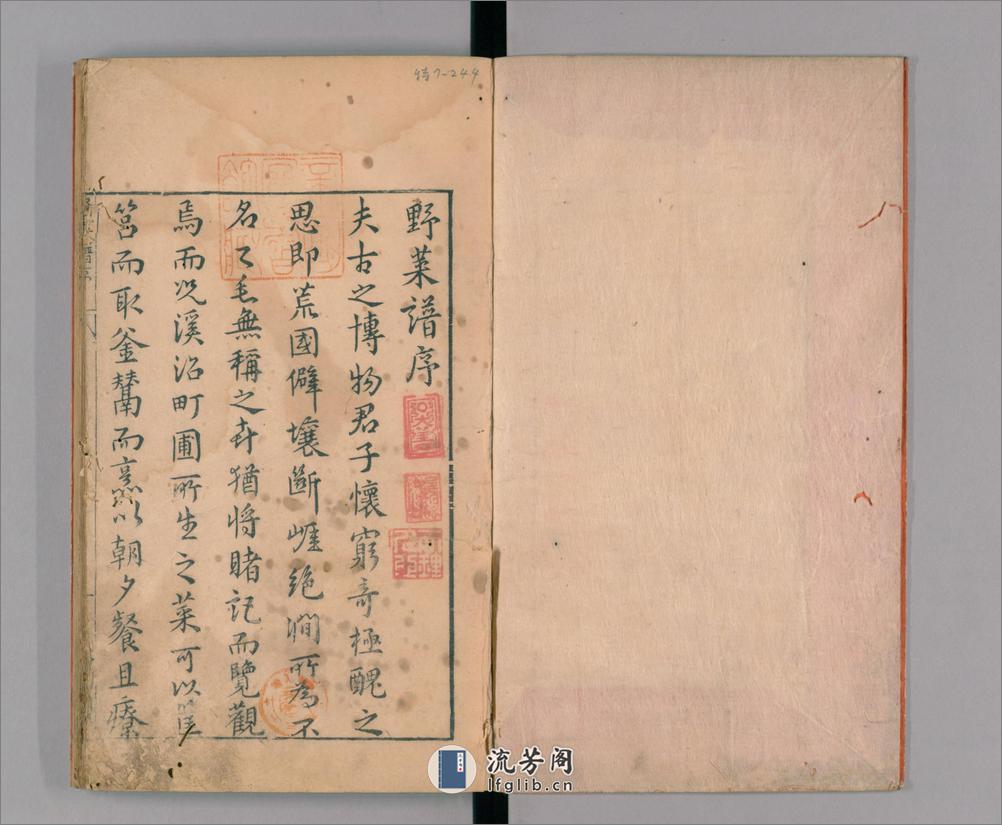 特7-244
野菜譜序
夫古之博物君子懷窮奇極醜之
思即荒國僻壤斷崕絶澗所為不
名之毛無稱之卉猶將睹記而覽觀
焉而况溪沼町圃所生之菜可以筐
筥而取釜鬵而烹以朝夕餐且療
流芳阁
lfglib.cn